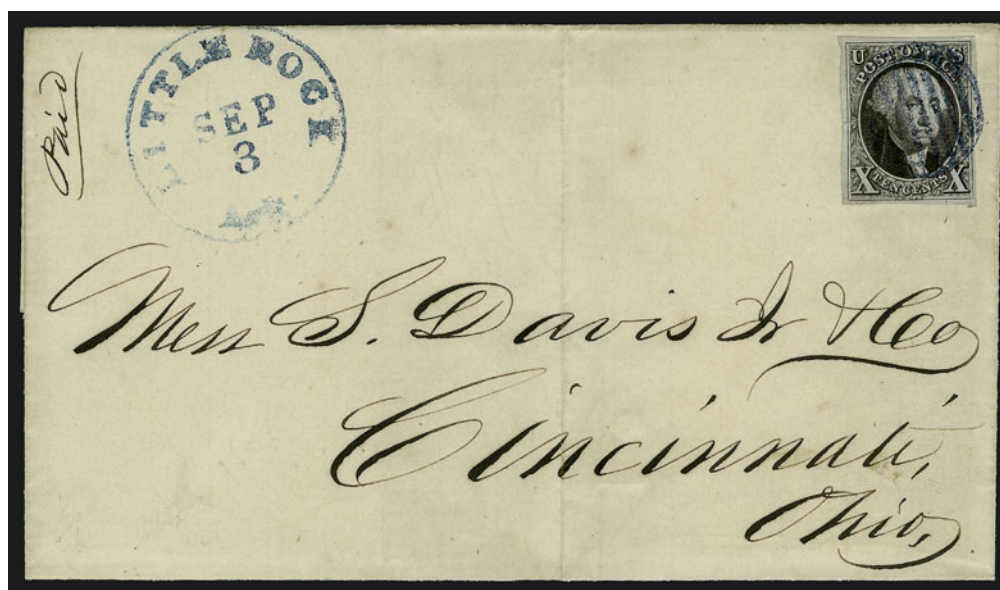 Paid
LITTLE ROCK
SEP
3
Ark.
U S
POST OFFICE
X TEN CENTS X
Mess S. Davis Jr & Co
Cincinnati,
Ohio,